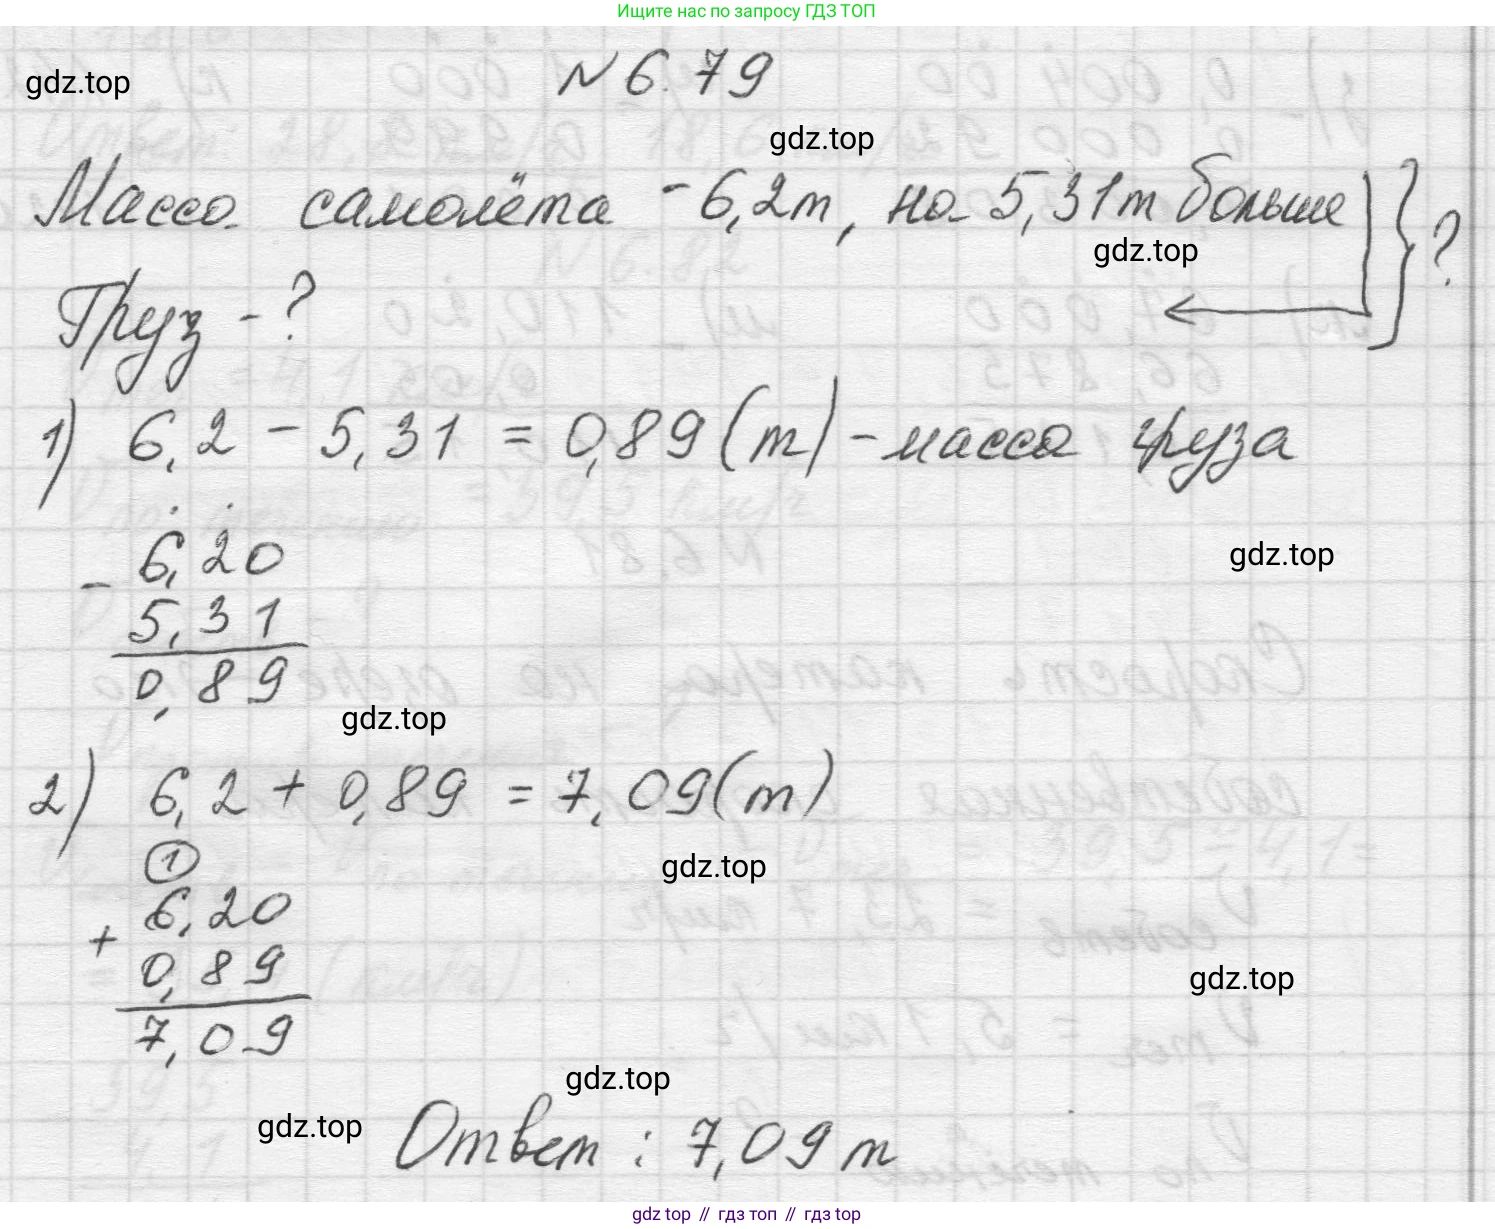 Ищите нас по запросу ГДЗ ТОП
gdz.top
№ 6.79
gdz.top
Масса самолёта - 6,2т, на 5,31т больше
gdz.top
?
Груз - ?
1) 6,2 - 5,31 = 0,89 (т) - масса груза
gdz.top
- 6,20
5,31
0,89
gdz.top
2) 6,2 + 0,89 = 7,09 (т)
gdz.top
1
+ 6,20
0,89
7,09
gdz.top
gdz.top
gdz.top
Ответ: 7,09 т
gdz top // гдз топ // гдз top